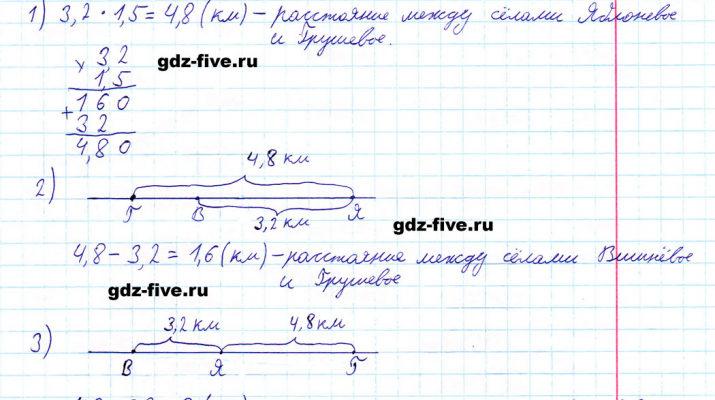 1) 3,2 · 1,5 = 4,8 (км) – расстояние между сёлами Яблоневое
и Грушевое.
× 3,2
1,5
gdz-five.ru
+ 160
32
4,80
2)
4,8 км
Г В Я
3,2 км
gdz-five.ru
4,8 – 3,2 = 1,6 (км) – расстояние между сёлами Вишнёвое
и Грушевое
gdz-five.ru
3)
3,2 км 4,8 км
В Я Г